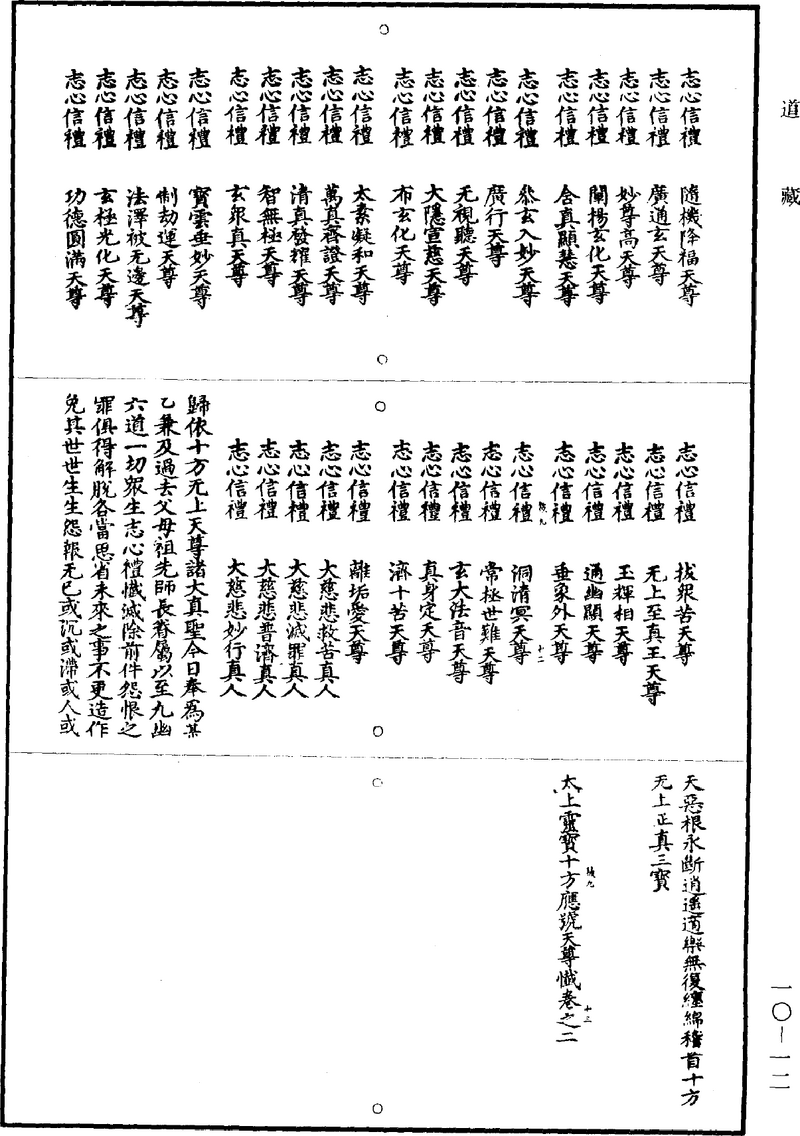 道藏
志心信禮 隨機降福天尊
志心信禮 廣通玄天尊
志心信禮 妙尊高天尊
志心信禮 闡揚玄化天尊
志心信禮 含真顯慧天尊
志心信禮 叅玄入妙天尊
志心信禮 廣行天尊
志心信禮 无視聽天尊
志心信禮 大隱宣慈天尊
志心信禮 布玄化天尊
志心信禮 太素凝和天尊
志心信禮 萬真齊證天尊
志心信禮 清真發耀天尊
志心信禮 智無極天尊
志心信禮 玄眾真天尊
志心信禮 寶雲垂妙天尊
志心信禮 制劫運天尊
志心信禮 法澤被无邊天尊
志心信禮 玄極光化天尊
志心信禮 功德圓滿天尊
志心信禮 拔眾苦天尊
志心信禮 无上至真王天尊
志心信禮 玉輝相天尊
志心信禮 通幽顯天尊
志心信禮 垂象外天尊
九 十二
志心信禮 洞清冥天尊
志心信禮 常極世難天尊
志心信禮 玄大法音天尊
志心信禮 真身定天尊
志心信禮 濟十苦天尊
志心信禮 離垢愛天尊
志心信禮 大慈悲救苦真人
志心信禮 大慈悲滅罪真人
志心信禮 大慈悲普濟真人
志心信禮 大慈悲妙行真人
歸依十方无上天尊諸大真聖今日奉為某
乙兼及過去父母祖先師長眷屬以至九幽
六道一切眾生志心禮懺滅除前件怨恨之
罪俱得解脫各當思省未來之事不更造作
免其世世生生怨報无已或沉或滯或人或
天惡根永斷逍遥適樂無復纏綿稽首十方
无上正真三寶
九 十三
太上靈寶十方應號天尊懺卷之二
一〇－一二